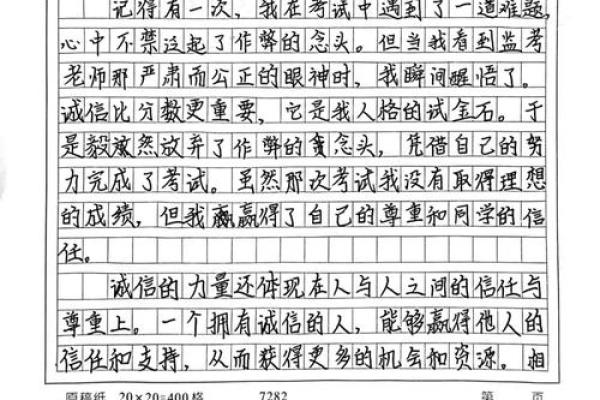 记得有一次，我在考试中遇到了一道难题，
心中不禁泛起了作弊的念头。但当我看到监考
老师那严肃而公正的眼神时，我瞬间醒悟了。
诚信比分数更重要，它是我人格的试金石。于
是毅然放弃了作弊的念头，凭借自己的努
力完成了考试。虽然那次考试我没有取得理想
的成绩，但我赢得了自己的尊重和同学的信
任。
诚信的力量还体现在人与人之间的信任与
尊重上。一个拥有诚信的人，能够赢得他人的
信任和支持，从而获得更多的机会和资源。相
原稿纸 20×20=400格 7282 第 页